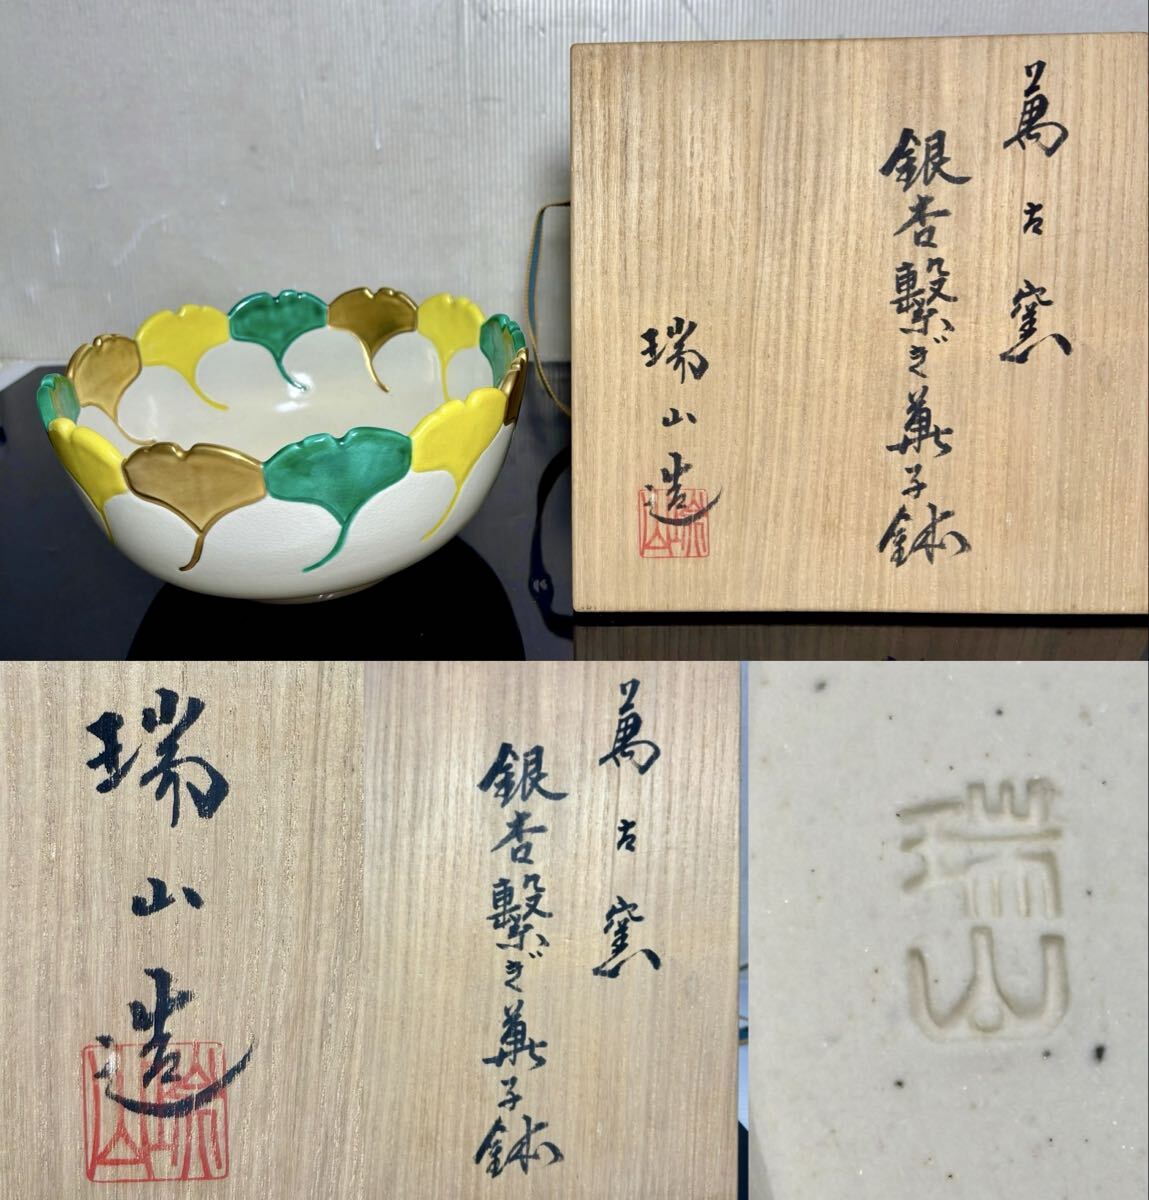 萬古窯
銀杏繋ぎ菓子鉢
瑞山造
瑞山
瑞山造
瑞山
萬古窯
銀杏繋ぎ菓子鉢
瑞山